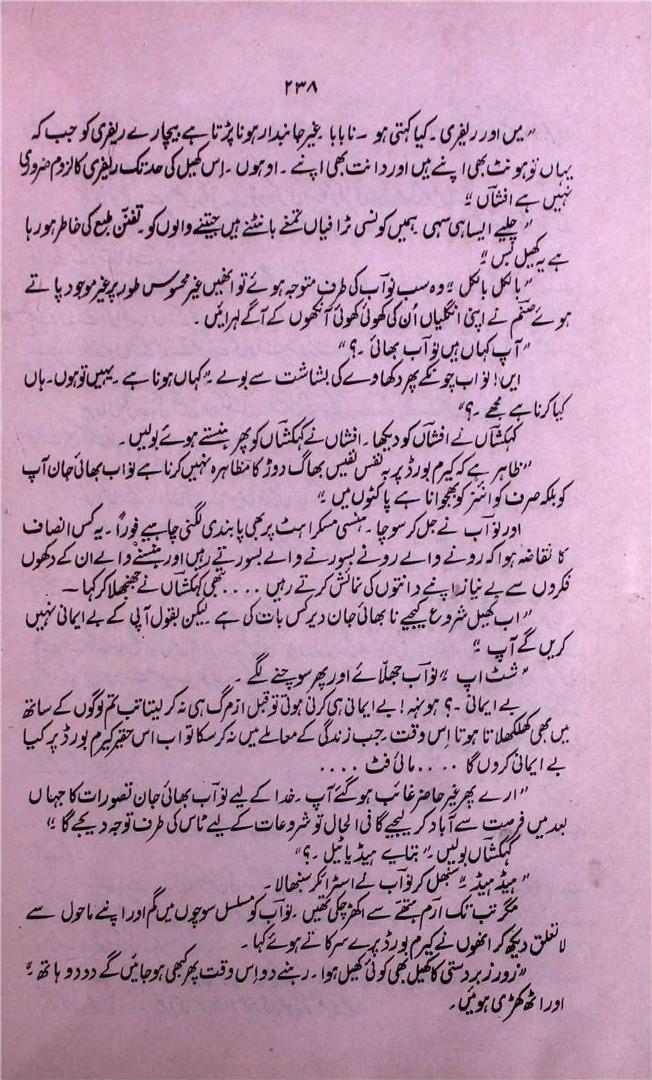 ۲۳۸
"میں اور ریفری۔ کیا کہتی ہو ۔ نا بابا غیر جانبدار ہونا پڑتا ہے بیچارے ریفری کو جب کہ
یہاں تو ہونٹ بھی اپنے ہیں اور دانت بھی اپنے ۔ اوہوں ۔ اس کھیل کی حد تک ریفری کا لزوم ضروری
نہیں ہے افشاں"
"چلیے ایسا ہی سہی ہمیں کونسی ٹرافیاں تمغے بانٹنے ہیں جیتنے والوں کو۔ تفنّن طبع کی خاطر ہو رہا
ہے یہ کھیل بس"
"بالکل بالکل" وہ سب نواب کی طرف متوجہ ہوئے تو انھیں غیر محسوس طور پر غیر موجود پاتے
ہوئے صنم نے اپنی انگلیاں اُن کی کھوئی کھوئی آنکھوں کے آگے لہرائیں ۔
"آپ کہاں ہیں نواب بھائی ۔؟"
ایں! نواب چونکے پھر دکھاوے کی بشاشت سے بولے "کہاں ہونا ہے ۔ یہیں تو ہوں۔ ہاں
کیا کرنا ہے مجھے ۔؟"
کہکشاں نے افشاں کو دیکھا ۔ افشاں نے کہکشاں کو پھر ہنستے ہوئے بولیں ۔
"ظاہر ہے کہ کیرم بورڈ پر بہ نفس نفیس بھاگ دوڑ کا مظاہرہ نہیں کرنا ہے نواب بھائی جان آپ
کو بلکہ صرف کوائنز کو بھجوانا ہے پاکٹوں میں"
اور نواب نے جل کر سوچا ۔ ہنسی مسکراہٹ پر بھی پابندی لگنی چاہیے فوراً ۔ یہ کس انصاف
کا تقاضہ ہوا کہ رونے والے رونے بسورنے والے بسورتے رہیں اور ہنسنے والے ان کے دکھوں
فکروں سے بے نیاز اپنے دانتوں کی نمائش کرتے رہیں .... تبھی کہکشاں نے جھنجھلا کر کہا ـــ
"اب کھیل شروع کیجیے نا بھائی جان دیر کس بات کی ہے ۔ لیکن بقول آپی کے بے ایمانی نہیں
کریں گے آپ"
"شٹ اپ" نواب جھلّائے اور پھر سوچنے لگے ۔
بے ایمانی ۔؟ ہونہہ! بے ایمانی ہی کرنی ہوتی تو قبل از مرگ ہی نہ کر لیتا تب تم لوگوں کے ساتھ
میں بھی کھلکھلاتا ہوتا اِس وقت ۔ جب زندگی کے معاملے میں نہ کر سکا تو اب اس حقیر کیرم بورڈ پر کیا
بے ایمانی کروں گا .... مائی فٹ ....
"ارے پھر غیر حاضر غائب ہو گئے آپ ۔ خدا کے لیے نواب بھائی جان تصورات کا جہاں
بعد میں فرصت سے آباد کر لیجیے گا فی الحال تو شروعات کے لیے ٹاس کی طرف توجہ دیجے گا"
کہکشاں بولیں ۔ "بتایے ہیڈ یا ٹیل ۔؟"
"ہیڈ ہیڈ" سنبھل کر نواب نے اسٹرائکر سنبھالا ۔
مگر تب تک ارم ہتھے سے اکھڑ چکی تھیں ۔ نواب کو مسلسل سوچوں میں گم اور اپنے ماحول سے
لاتعلق دیکھ کر انھوں نے کیرم بورڈ پرے سرکاتے ہوئے کہا ۔
"زور زبردستی کا کھیل بھی کوئی کھیل ہوا ۔ رہنے دو اِس وقت پھر کبھی ہو جائیں گے دو دو ہاتھ"
اور اٹھ کھڑی ہوئیں ۔